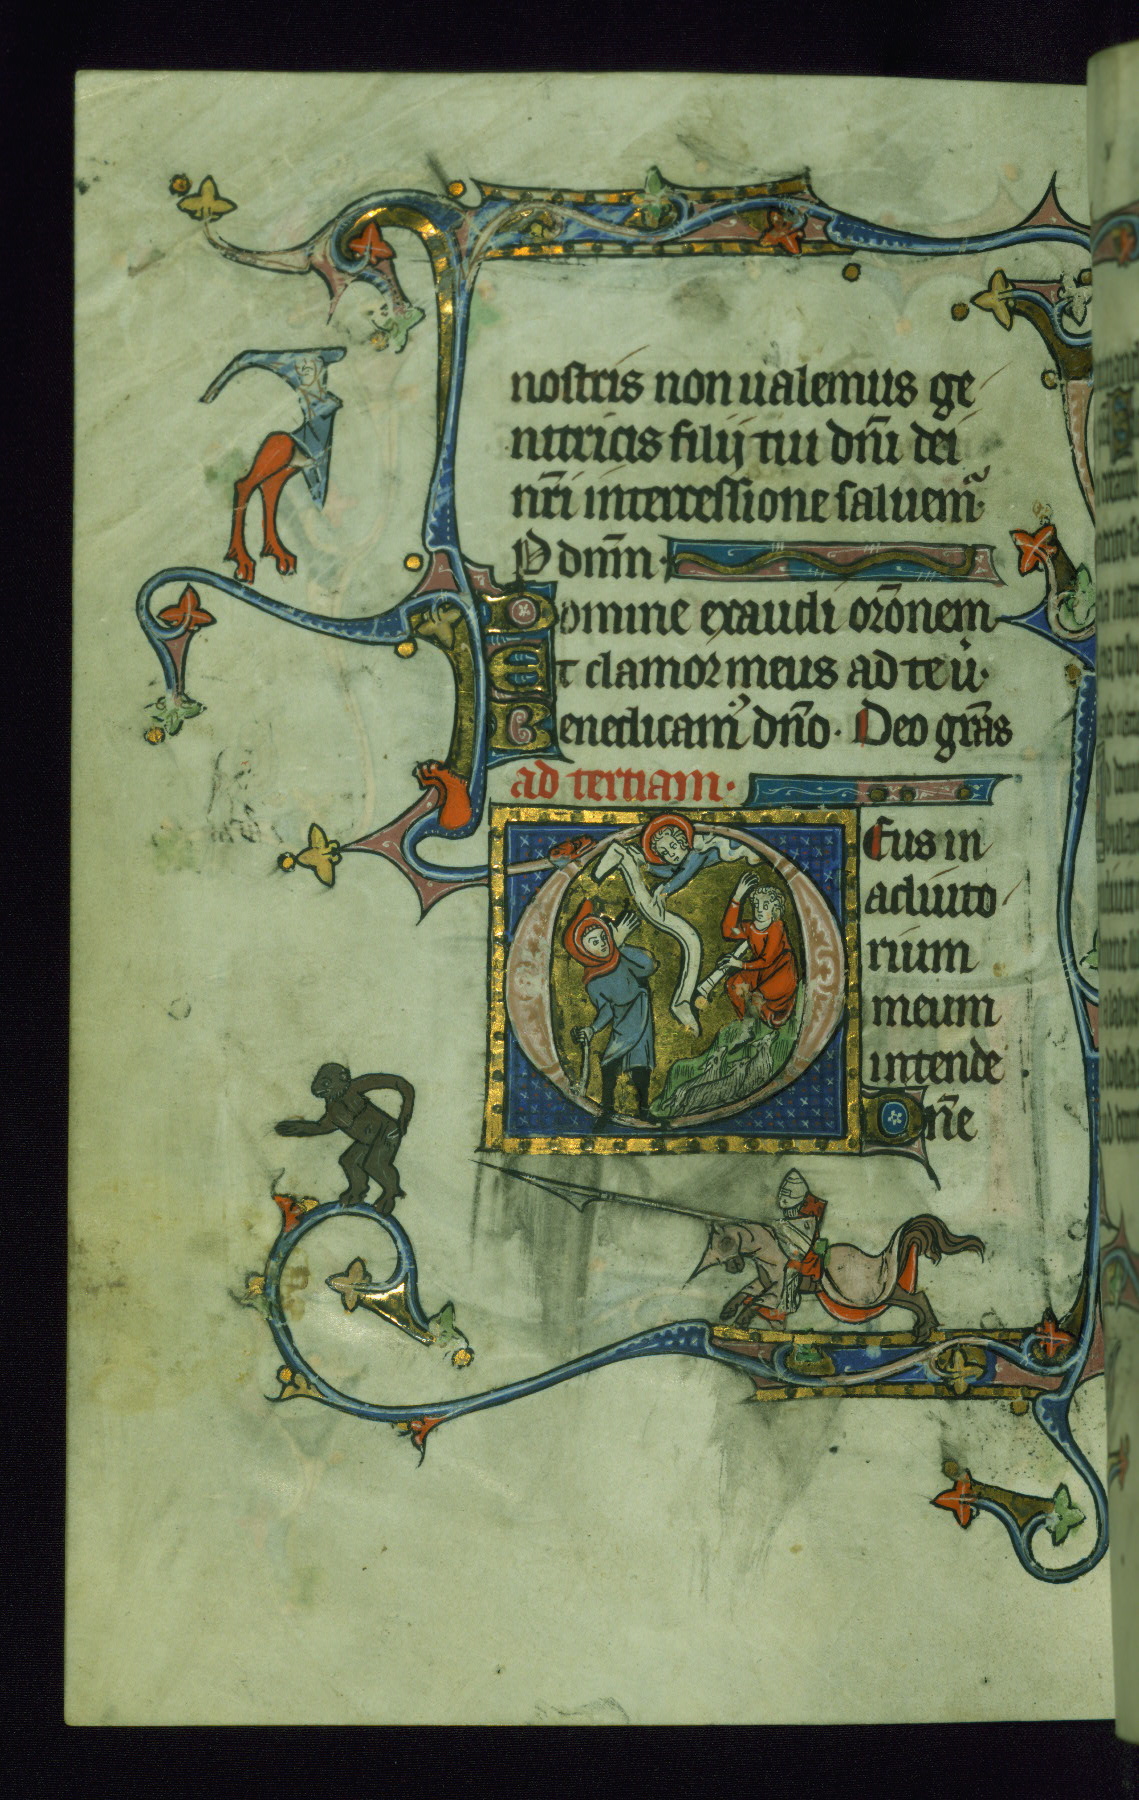 nostris non ualemus ge
nitricis filij tui dn̄i dei
nr̄i intercessione saluem᷑.
P dn̄m
Domine exaudi orōnem
Et clamor meus ad te u̇.
Benedicam᷒ dn̄o. Deo grās
ad tertiam.
Deus in
adiuto
rium
meum
intende.
Dn̄e